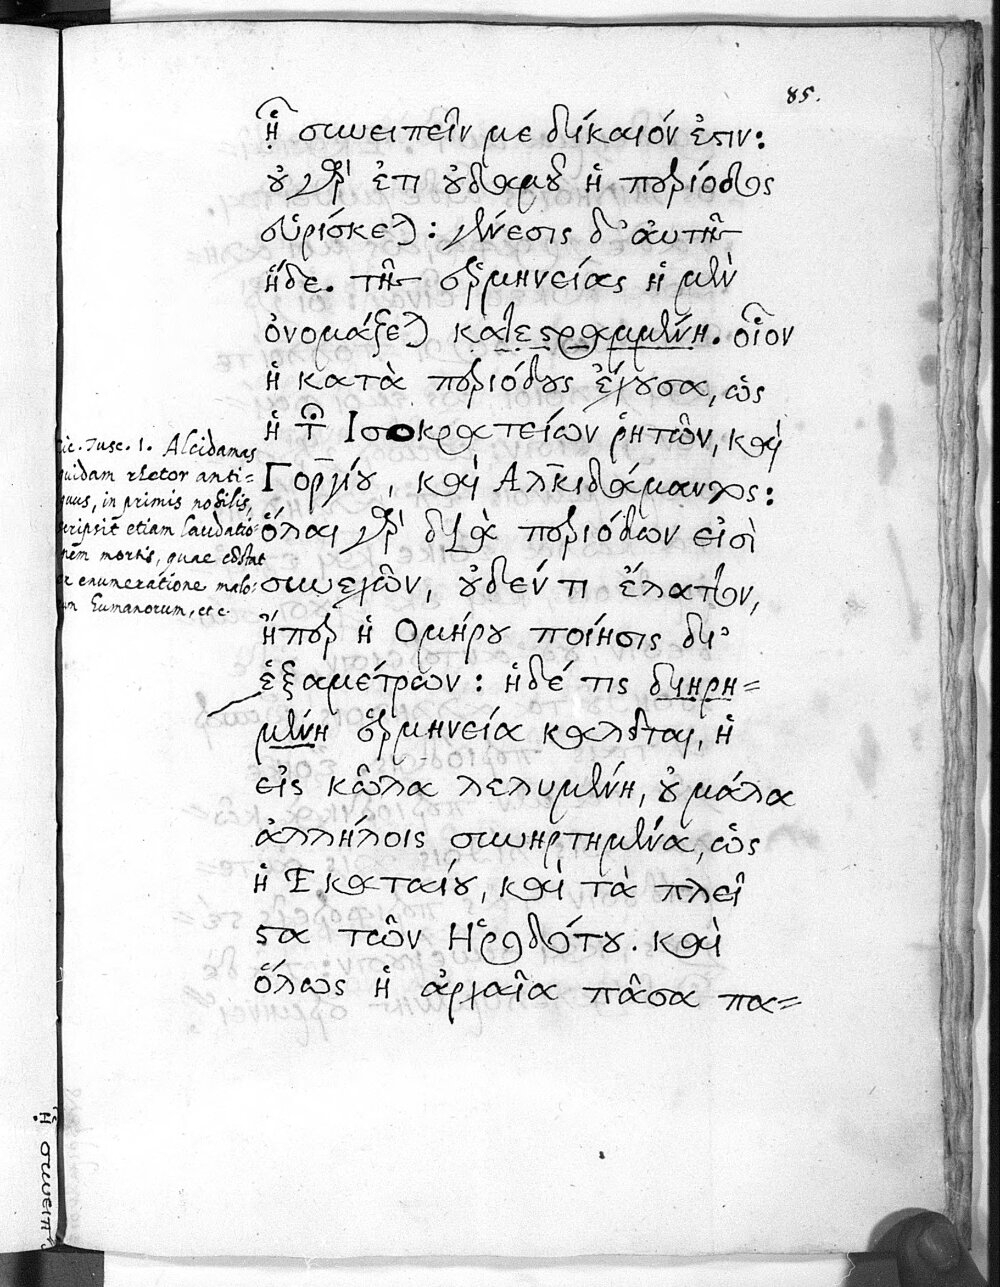 85.
ἢ συνειπεῖν με δίκαιόν ἐστιν:
οὐ γὰρ ἔτι οὐδαμοῦ ἡ περίοδος
εὑρίσκεται: γένεσις δ' αὐτῆς
ἥδε. τῆς ἑρμηνείας ἡ μὲν
ὀνομάζεται κατεστραμμένη. οἷον
ἡ κατὰ περιόδους ἔχουσα, ὡς
ἡ τῶν Ισοκρατείων ῥητῶν, καὶ
Γοργίου, καὶ Αλκιδάμαντος:
ὅλαι γὰρ διὰ περιόδων εἰσὶ
συνεχῶν, οὐδέν τι ἔλαττον,
ἤπερ ἡ Ομήρου ποίησις δι'
ἑξαμέτρων: ἡ δέ τις διῃρη=
μένη ἑρμηνεία καλεῖται, ἡ
εἰς κῶλα λελυμένη, οὐ μάλα
ἀλλήλοις συνηρτημένα, ὡς
ἡ Εκαταίου, καὶ τὰ πλεῖ
στα τῶν Ηροδότου. καὶ
ὅλως ἡ ἀρχαῖα πᾶσα πα=
Cic. Tusc. 1. Alcidamas
quidam rhetor anti=
quus, in primis nobilis,
scripsit etiam laudatio=
nem mortis, quae constat
ex enumeratione malo=
um humanorum, etc.
ἢ συνειπ